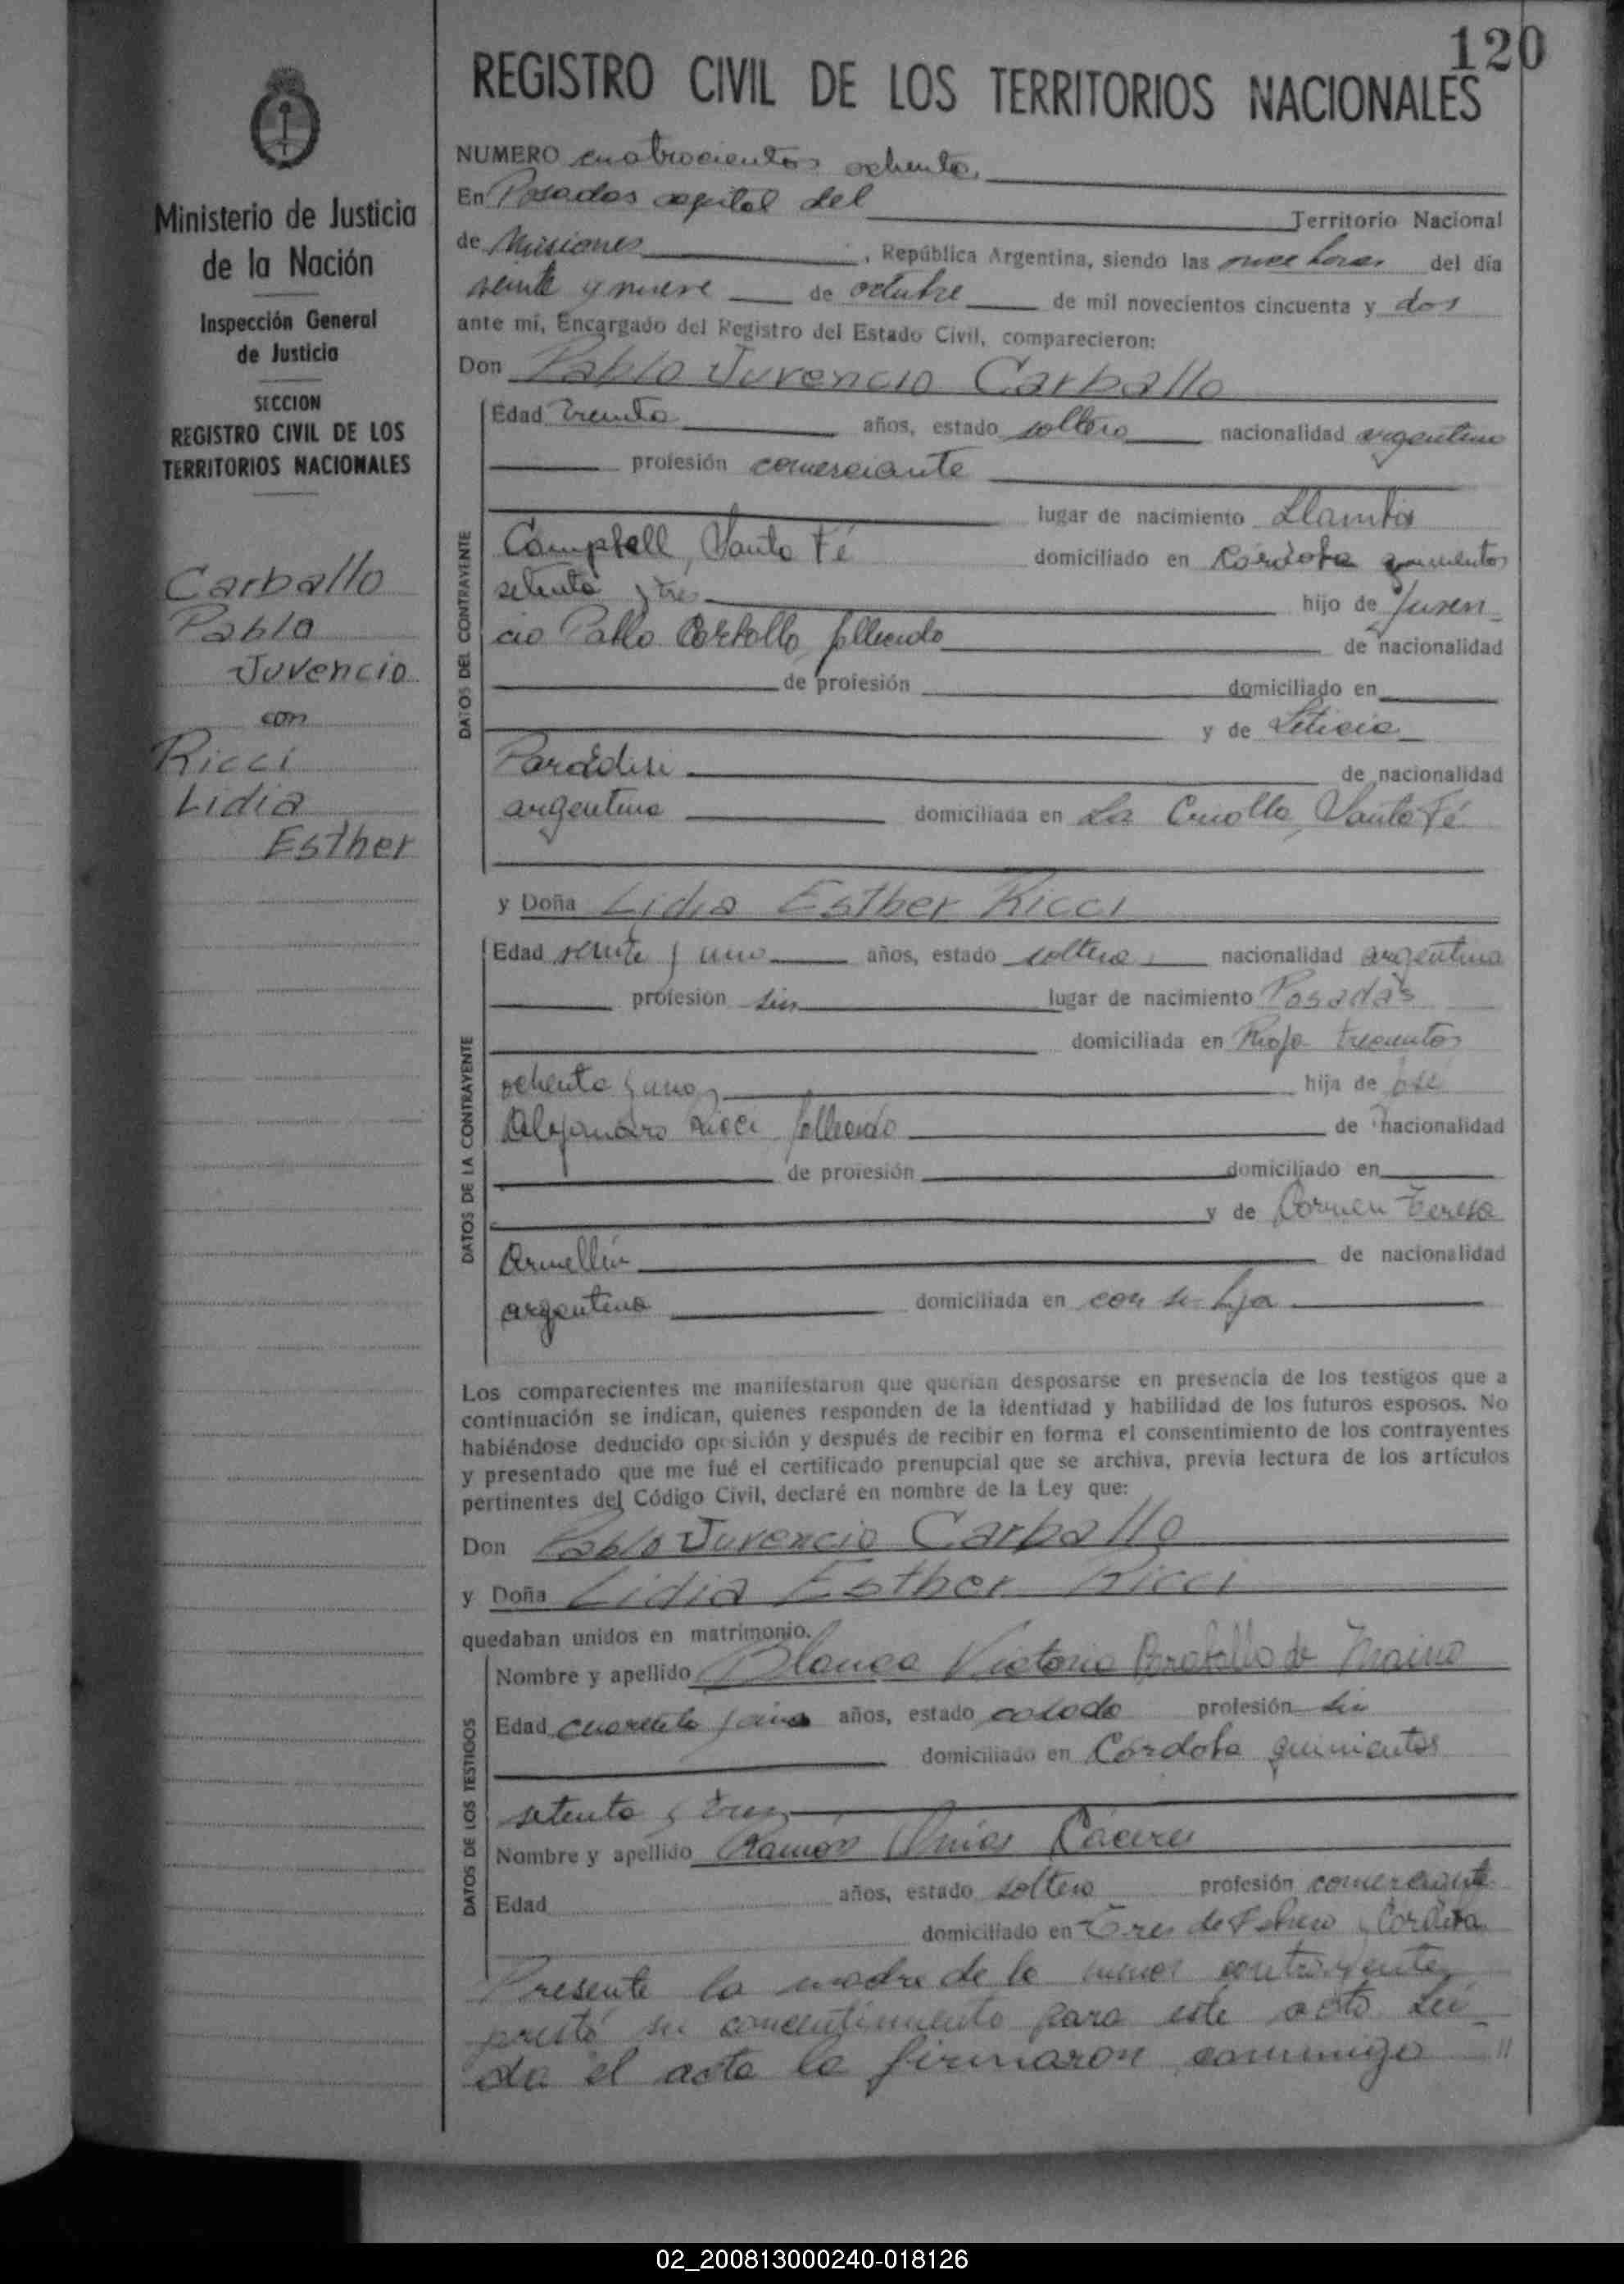 120
REGISTRO CIVIL DE LOS TERRITORIOS NACIONALES
Ministerio de Justicia
de la Nación
Inspección General
de Justicia
SECCION
REGISTRO CIVIL DE LOS
TERRITORIOS NACIONALES
Carballo
Pablo
Juvencio
con
Ricci
Lidia
Esther
NUMERO cuatrocientos ochenta,
En Posadas capital del Territorio Nacional
de Misiones, República Argentina, siendo las once horas del día
veinte y nueve de octubre de mil novecientos cincuenta y dos
ante mí, Encargado del Registro del Estado Civil, comparecieron:
Don Pablo Juvencio Carballo
DATOS DEL CONTRAYENTE
Edad treinta años, estado soltero nacionalidad argentino
profesión comerciante
lugar de nacimiento Llambi
Campbell, Santa Fé domiciliado en Córdoba quinientos
setenta y tres hijo de Juven-
cio Pablo Carballo, fallecido de nacionalidad
de profesión domiciliado en
y de Leticia
Parádisi de nacionalidad
argentina domiciliada en La Criolla, Santa Fé
y Doña Lidia Esther Ricci
DATOS DE LA CONTRAYENTE
Edad veinte y uno años, estado soltera nacionalidad argentina
profesión sin lugar de nacimiento Posadas
domiciliada en Rioja trescientos
ochenta y uno, hija de José
Alejandro Ricci, fallecido de nacionalidad
de profesión domiciliado en
y de Carmen Teresa
Armellin de nacionalidad
argentina domiciliada en con su hija
Los comparecientes me manifestaron que querían desposarse en presencia de los testigos que a
continuación se indican, quienes responden de la identidad y habilidad de los futuros esposos. No
habiéndose deducido oposición y después de recibir en forma el consentimiento de los contrayentes
y presentado que me fué el certificado prenupcial que se archiva, previa lectura de los artículos
pertinentes del Código Civil, declaré en nombre de la Ley que:
Don Pablo Juvencio Carballo
y Doña Lidia Esther Ricci
quedaban unidos en matrimonio.
DATOS DE LOS TESTIGOS
Nombre y apellido Blanca Victoria Carballo de Maino
Edad cuarenta y años, estado casada profesión sin
domiciliado en Córdoba quinientos
setenta y tres,
Nombre y apellido Ramón Cáceres
Edad años, estado soltero profesión comerciante
domiciliado en Tres de Febrero y Córdoba
Presente la madre de la menor contrayente
prestó su concentimiento para este acto. Leí-
da el acta la firmaron conmigo "
02_200813000240-018126